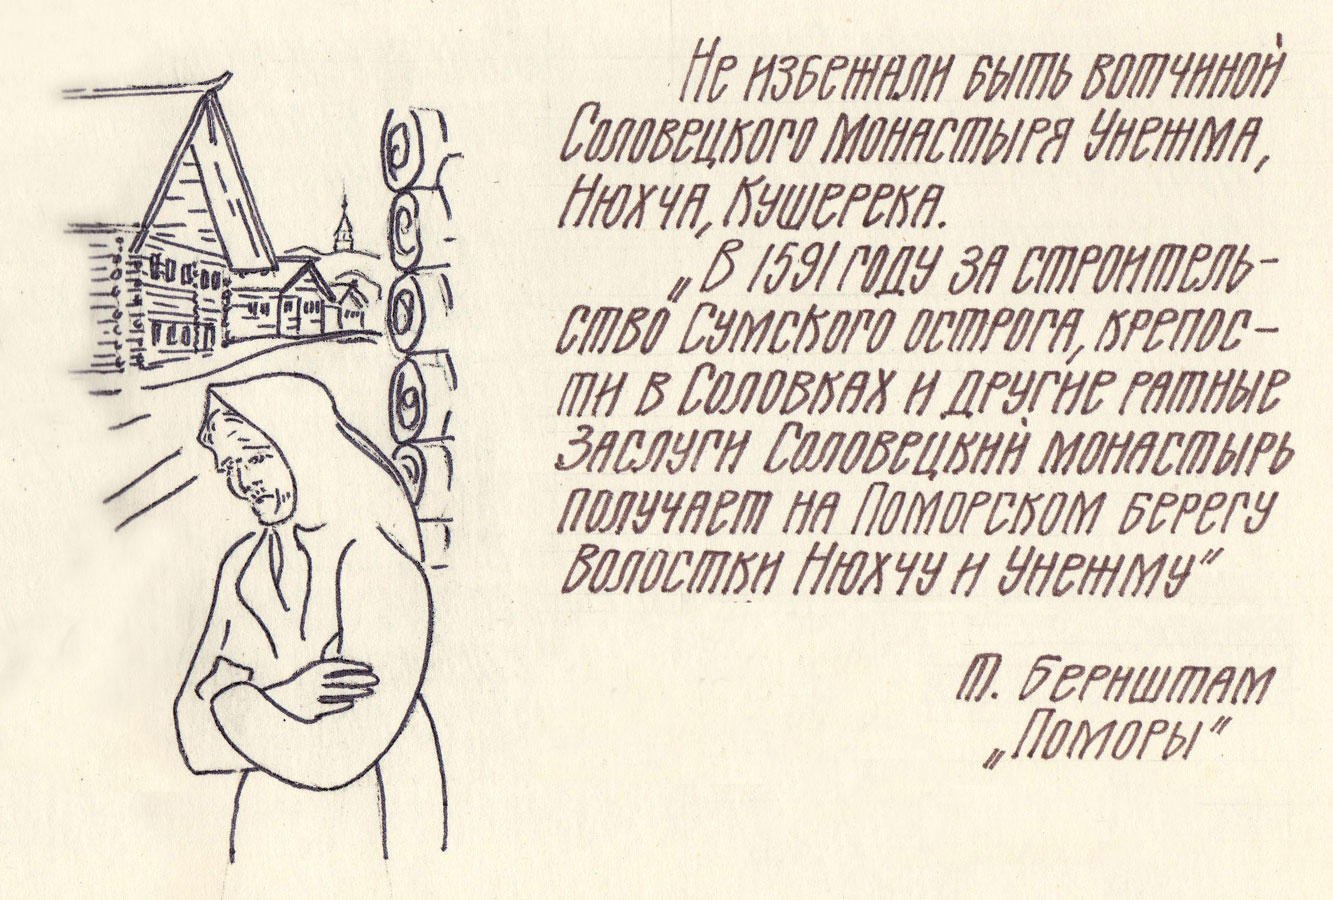 Не избежали быть вотчиной
Соловецкого монастыря Унежма,
Нюхча, Кушерека.
„В 1591 году за строитель-
ство Сумского острога, крепос-
ти в Соловках и другие ратные
заслуги Соловецкий монастырь
получает на Поморском берегу
волостки Нюхчу и Унежму“
Т. Бернштам
„Поморы“